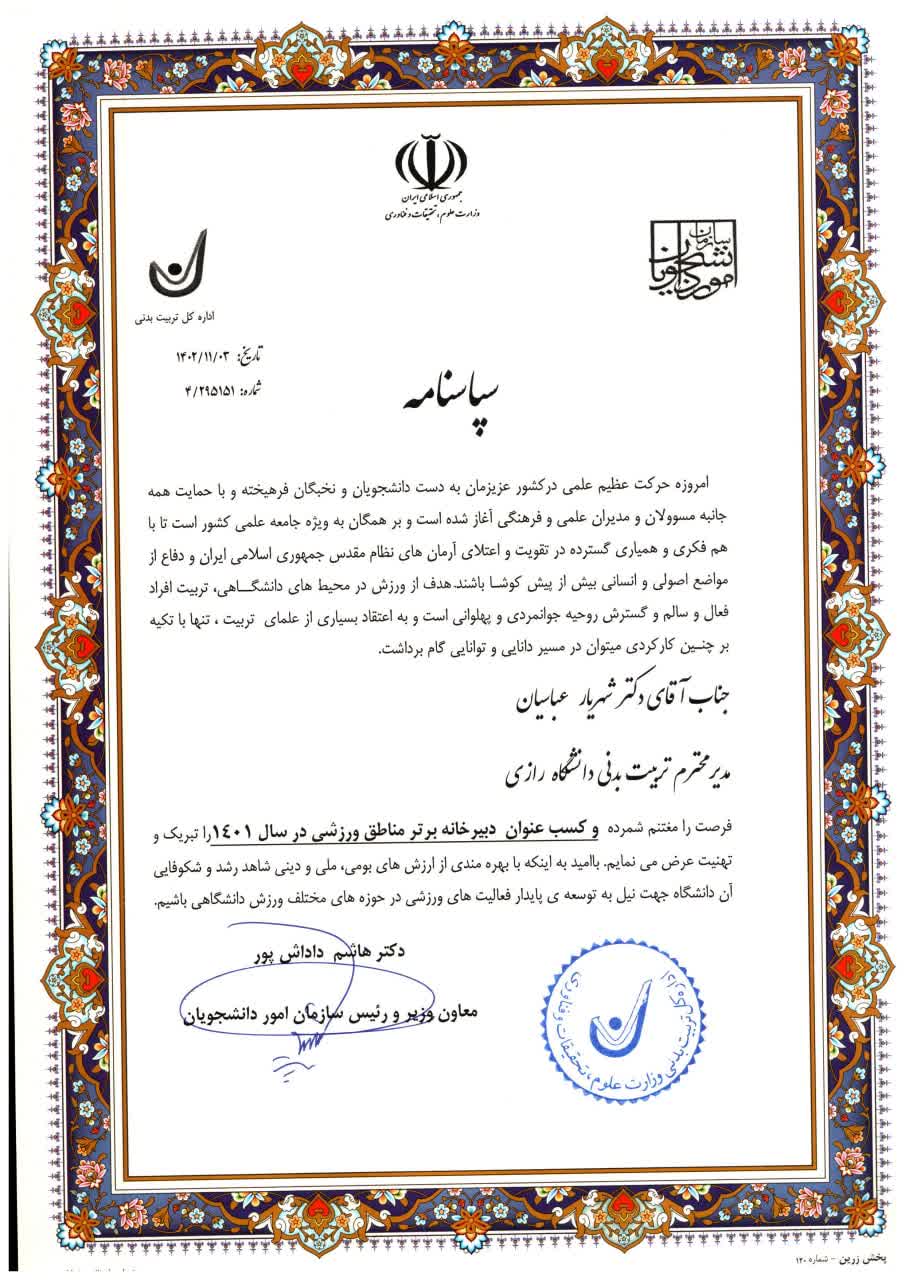 جمهوری اسلامی ایران
وزارت علوم، تحقیقات و فناوری
سازمان امور دانشجویان
اداره کل تربیت بدنی
تاریخ: ۱۴۰۲/۱۱/۰۳
شماره: ۴/۲۹۵۱۵۱
سپاسنامه
امروزه حرکت عظیم علمی درکشور عزیزمان به دست دانشجویان و نخبگان فرهیخته و با حمایت همه
جانبه مسوولان و مدیران علمی و فرهنگی آغاز شده است و بر همگان به ویژه جامعه علمی کشور است تا با
هم فکری و همیاری گسترده در تقویت و اعتلای آرمان های نظام مقدس جمهوری اسلامی ایران و دفاع از
مواضع اصولی و انسانی بیش از پیش کوشا باشند.هدف از ورزش در محیط های دانشگاهی، تربیت افراد
فعال و سالم و گسترش روحیه جوانمردی و پهلوانی است و به اعتقاد بسیاری از علمای تربیت ، تنها با تکیه
بر چنین کارکردی میتوان در مسیر دانایی و توانایی گام برداشت.
جناب آقای دکتر شهریار عباسیان
مدیر محترم تربیت بدنی دانشگاه رازی
فرصت را مغتنم شمرده و کسب عنوان دبیرخانه برتر مناطق ورزشی در سال ۱۴۰۱را تبریک و
تهنیت عرض می نمایم. باامید به اینکه با بهره مندی از ارزش های بومی، ملی و دینی شاهد رشد و شکوفایی
آن دانشگاه جهت نیل به توسعه ی پایدار فعالیت های ورزشی در حوزه های مختلف ورزش دانشگاهی باشیم.
دکتر هاشم داداش پور
معاون وزیر و رئیس سازمان امور دانشجویان
اداره کل تربیت بدنی وزارت علوم، تحقیقات و فناوری
پخش زرین - شماره ۱۲۰